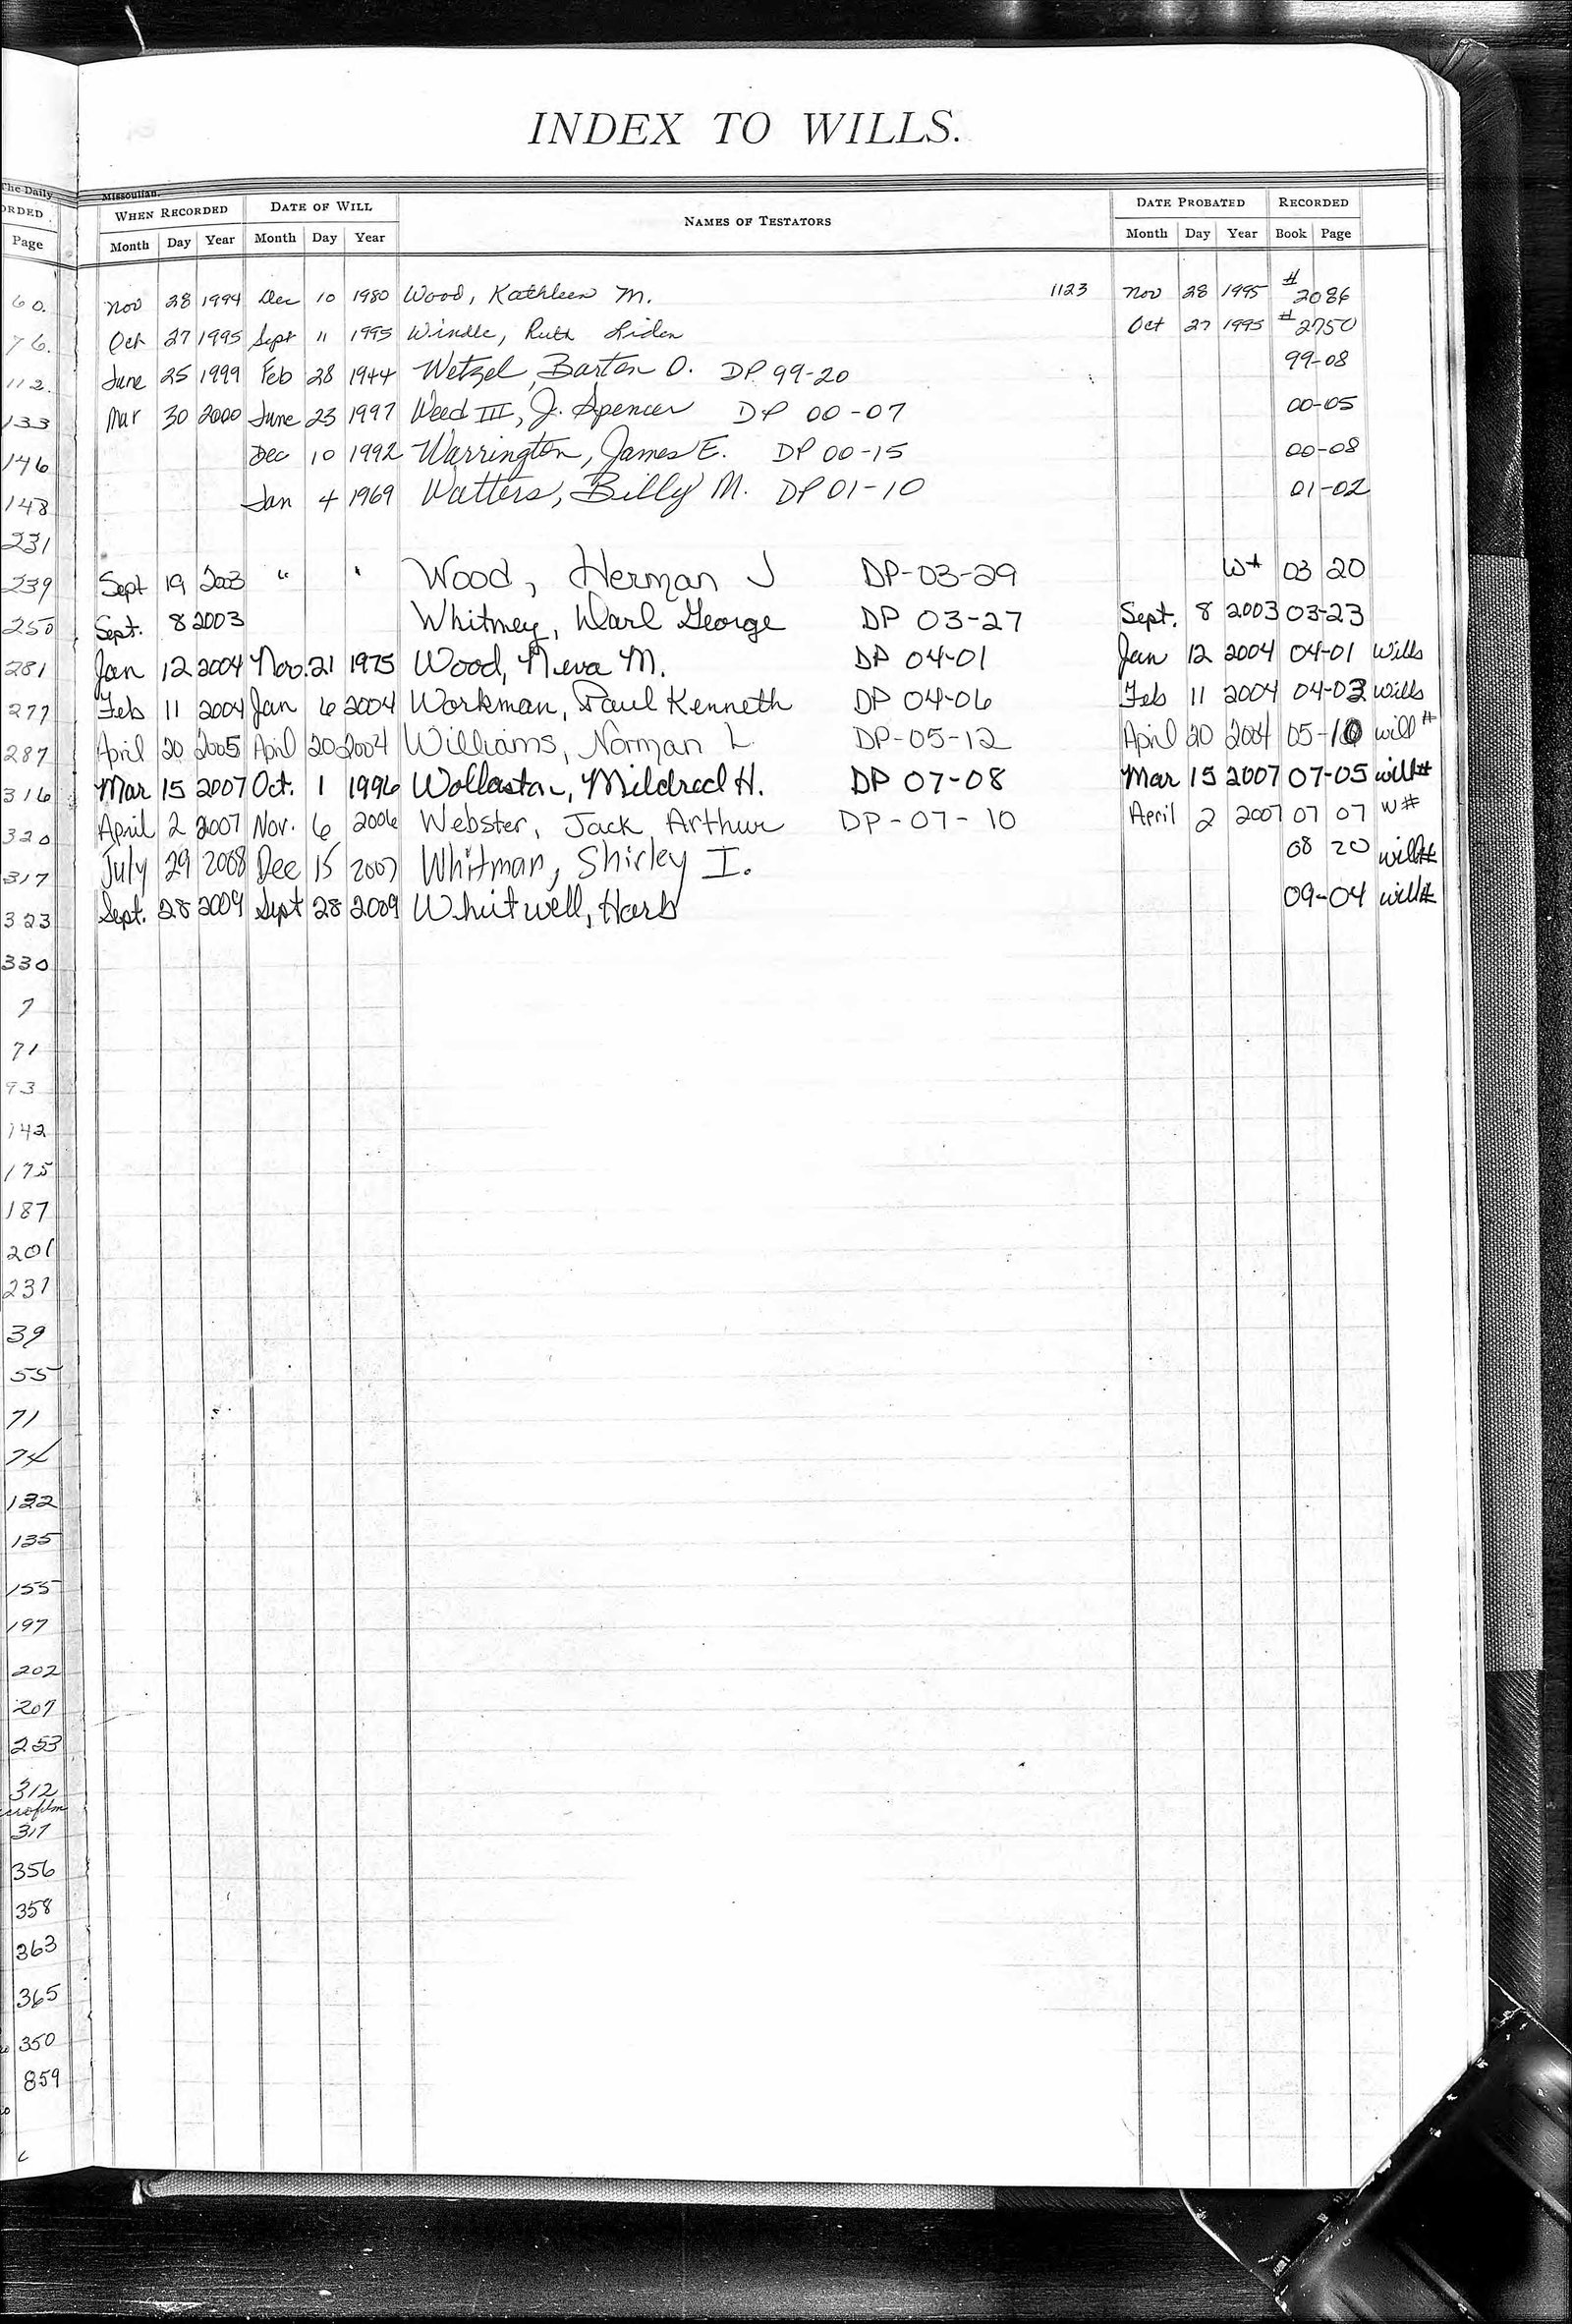 INDEX TO WILLS.
The Daily Missoulian.
ORDED WHEN RECORDED DATE OF WILL NAMES OF TESTATORS DATE PROBATED RECORDED
Page Month Day Year Month Day Year Month Day Year Book Page
60. Nov 28 1994 Dec 10 1980 Wood, Kathleen M. 1123 Nov 28 1995 # 2086
76. Oct 27 1995 Sept 11 1995 Windle, Ruth Liden Oct 27 1995 # 2750
112. June 25 1999 Feb 28 1944 Wetzel, Barton O. DP 99-20 99-08
133 Mar 30 2000 June 23 1997 Weed III, J. Spencer DP 00-07 00-05
146 Dec 10 1992 Warrington, James E. DP 00-15 00-08
148 Jan 4 1969 Watters, Billy M. DP 01-10 01-02
231
239 Sept 19 2003 " " Wood, Herman J DP-03-29 W# 03 20
250 Sept. 8 2003 Whitney, Darl George DP 03-27 Sept. 8 2003 03-23
281 Jan 12 2004 Nov. 21 1975 Wood, Neva M. DP 04-01 Jan 12 2004 04-01 Wills
277 Feb 11 2004 Jan 6 2004 Workman, Paul Kenneth DP 04-06 Feb 11 2004 04-03 wills
287 April 20 2005 April 20 2004 Williams, Norman L. DP-05-12 April 20 2004 05-10 will#
316 Mar 15 2007 Oct. 1 1996 Wollaston, Mildred H. DP 07-08 Mar 15 2007 07-05 will#
320 April 2 2007 Nov. 6 2006 Webster, Jack Arthur DP-07-10 April 2 2007 07 07 W#
317 July 29 2008 Dec 15 2007 Whitman, Shirley I. 08 20 will#
323 Sept. 28 2009 Sept 28 2009 Whitwell, Harb 09-04 will#
330
7
71
93
142
175
187
201
231
39
55
71
74
132
135
155
197
202
207
253
312
317
356
358
363
365
350
859